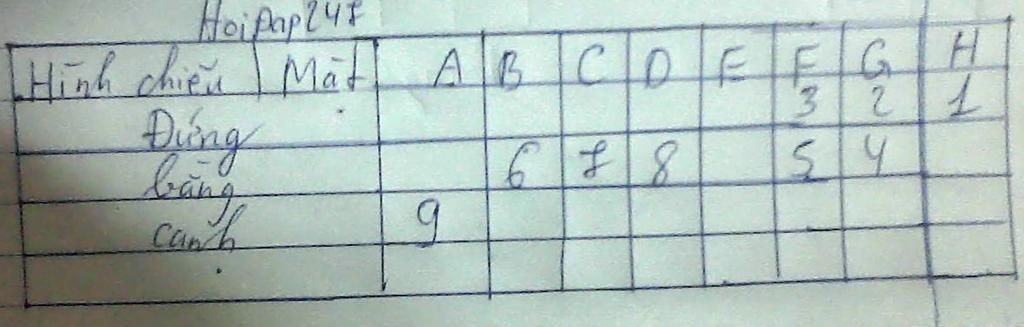 Hoidap247
Hình chiếu | Mặt A B C D E F G H
Đứng 3 2 1
bằng 6 7 8 5 4
cạnh 9